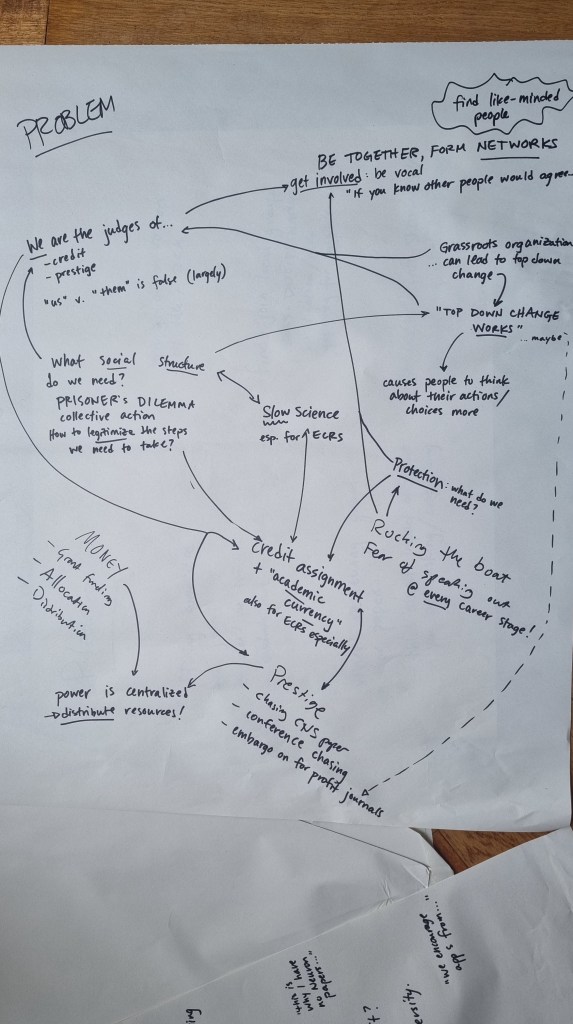 PROBLEM
find like-minded
people
BE TOGETHER, FORM NETWORKS
get involved: be vocal
"If you know other people would agree...
We are the judges of...
- credit
- prestige
"us" v. "them" is false (largely)
Grassroots organization
... can lead to top down
change
"TOP DOWN CHANGE
WORKS"
... maybe
causes people to think
about their actions/
choices more
What social structure
do we need?
PRISONER'S DILEMMA
collective action
How to legitimize the steps
we need to take?
Slow Science
esp. for ECRS
Protection: what do we
need?
Rocking the boat
Fear of speaking out
@ every career stage!
credit assignment
+ "academic
currency"
also for ECRs especially
MONEY
- Grant funding
- Allocation
- Distribution
power is centralized
→ distribute resources!
Prestige
- chasing CNS paper
- conference chasing
- embargo on for profit journals
"we encourage
app's from..."
why I have
no Neuron
papers..."